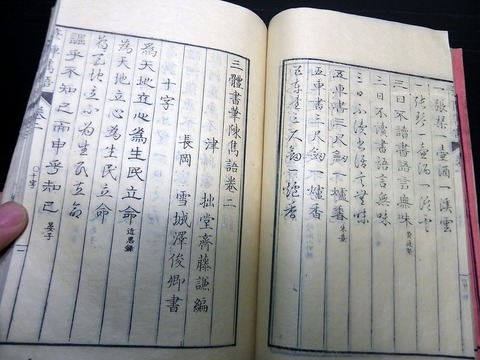 一張琴一壺酒一溪雲
一張琴一壺酒一溪雲
三日不讀書語言無味
三日不讀書語言無味
三日不讀書語言無味
五車書三尺劍一爐香 朱熹
五車書三尺劍一爐香
五車書三尺劍一爐香
三體書華陳雋語卷二
津 拙堂齋藤謙編
長岡 雪城澤俊卿書
十字
為天地立心為生民立命 近思錄
為天地立心為生民立命
為天地立心為生民立命
詘乎不知己而申乎知己 晏子
○十字